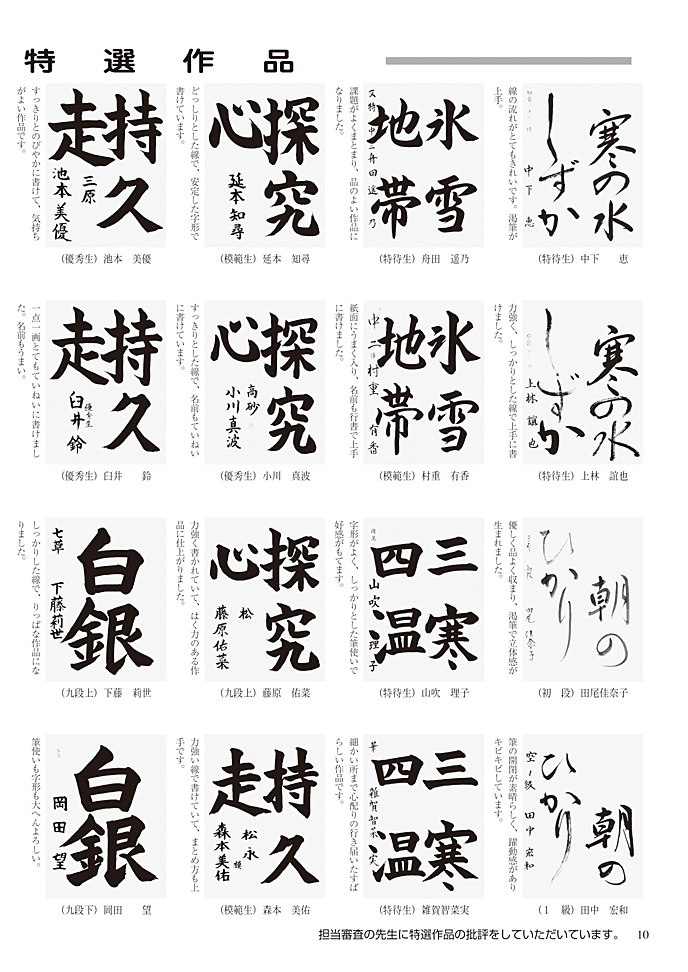 特選作品
寒の水
しずか
中下 恵
線の流れがとてもきれいです。渇筆が
上手。
(特待生) 中下 恵
氷雪
地帯
舟田 遥乃
課題がよくまとまり、品のよい作品に
なりました。
(特待生) 舟田 遥乃
探究
心
延本知尋
どっしりとした線で、安定した字形で
書けています。
(模範生) 延本 知尋
持久
走
三原
池本美優
すっきりとのびやかに書けて、気持ち
がよい作品です。
(優秀生) 池本 美優
寒の水
しずか
上林 誼也
力強く、しっかりとした線で上手に書
けました。
(特待生) 上林 誼也
氷雪
地帯
中二 村重 有香
紙面にうまく入り、名前も行書で上手
に書けました。
(模範生) 村重 有香
探究
心
高砂
小川真波
すっきりとした線で、名前もていねい
に書けています。
(優秀生) 小川 真波
持久
走
優秀生
臼井 鈴
一点一画とてもていねいに書けまし
た。名前もうまい。
(優秀生) 臼井 鈴
朝の
ひかり
田尾佳奈子
優しく品よく収まり、渇筆で立体感が
生まれました。
(初 段) 田尾佳奈子
三寒
四温
山吹 理子
字形がよく、しっかりとした筆使いで
好感がもてます。
(特待生) 山吹 理子
探究
心
松
藤原佑菜
力強く書かれていて、はく力のある作
品に仕上がりました。
(九段上) 藤原 佑菜
白銀
七草 下藤莉世
しっかりした線で、りっぱな作品にな
りました。
(九段上) 下藤 莉世
朝の
ひかり
空一級 田中宏和
筆の開閉が素晴らしく、躍動感があり
キビキビしています。
(1 級) 田中 宏和
三寒
四温
雑賀智菜実
細かい所まで心配りの行き届いたすば
らしい作品です。
(特待生) 雑賀智菜実
持久
走
松永
森本美佑
力強い線で書けていて、まとめ方も上
手です。
(模範生) 森本 美佑
白銀
岡田 望
筆使いも字形も大へんよろしい。
(九段下) 岡田 望
担当審査の先生に特選作品の批評をしていただいています。 10